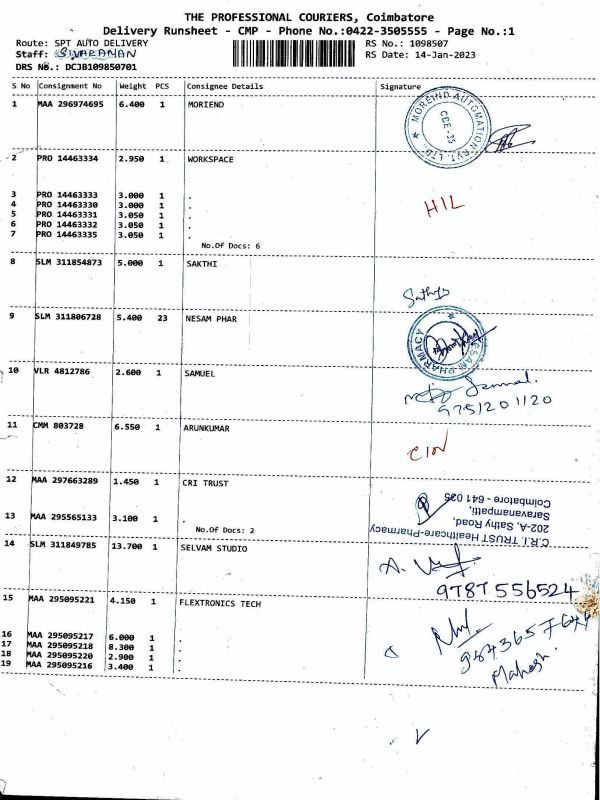 THE PROFESSIONAL COURIERS, Coimbatore
Delivery Runsheet - CMP - Phone No.:0422-3505555 - Page No.:1
Route: SPT AUTO DELIVERY RS No.: 1098507
Staff: SIVARAMAN RS Date: 14-Jan-2023
DRS No.: DCJB109850701
S No Consignment No Weight PCS Consignee Details Signature
1 MAA 296974695 6.400 1 MORIEND
MOREIND AUTOMATION PVT. LTD.,
CBE-35
2 PRO 14463334 2.950 1 WORKSPACE
3 PRO 14463333 3.000 1 .
4 PRO 14463330 3.000 1 .
5 PRO 14463331 3.050 1 .
6 PRO 14463332 3.050 1 .
7 PRO 14463335 3.050 1 .
HIL
No.Of Docs: 6
8 SLM 311854873 5.000 1 SAKTHI
9 SLM 311806728 5.400 23 NESAM PHAR
NESAM PHARMACY
10 VLR 4812786 2.600 1 SAMUEL
9751201120
11 CMM 803728 6.550 1 ARUNKUMAR
12 MAA 297663289 1.450 1 CRI TRUST
13 MAA 295565133 3.100 1 .
No.Of Docs: 2
C.R.I. TRUST Healthcare-Pharmacy
202-A, Sathy Road,
Saravanampatti,
Coimbatore - 641 035
14 SLM 311849785 13.700 1 SELVAM STUDIO
9787556524
15 MAA 295095221 4.150 1 FLEXTRONICS TECH
16 MAA 295095217 6.000 1 .
17 MAA 295095218 8.300 1 .
18 MAA 295095220 2.900 1 .
19 MAA 295095216 3.400 1 .
Mahesh.